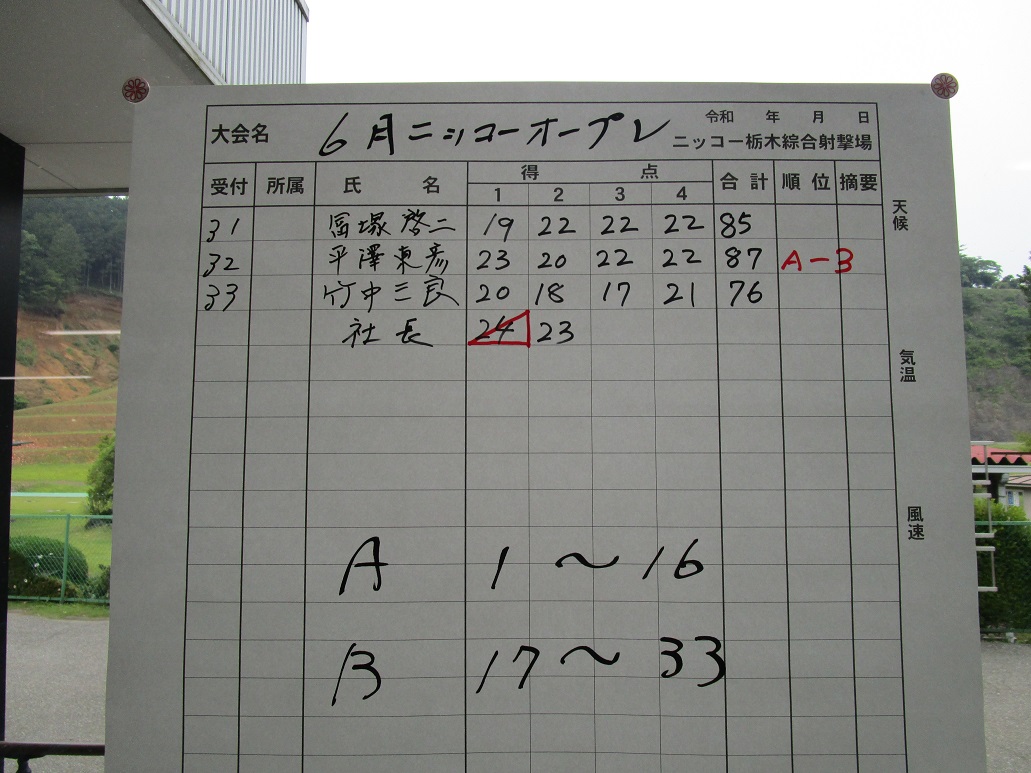 大会名 6月ニッコーオープン 令和 年 月 日
ニッコー栃木綜合射撃場
受付 所属 氏名 得点 合計 順位 摘要
1 2 3 4
31 冨塚啓二 19 22 22 22 85
32 平澤東彦 23 20 22 22 87 A-3
33 竹中三良 20 18 17 21 76
社長 24 23
A 1〜16
B 17〜33
天候
気温
風速